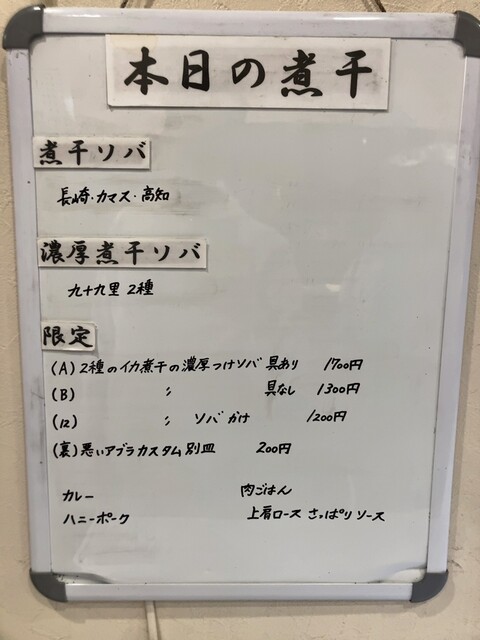 本日の煮干
煮干ソバ
長崎・カマス・高知
濃厚煮干ソバ
九十九里 2種
限定
(A) 2種のイカ煮干の濃厚つけソバ 具あり 1700円
(B) 〃 具なし 1300円
(12) 〃 ソバかけ 1200円
(裏) 悪いアブラカスタム別皿 200円
カレー 肉ごはん
ハニーポーク 上肩ロース さっぱりソース